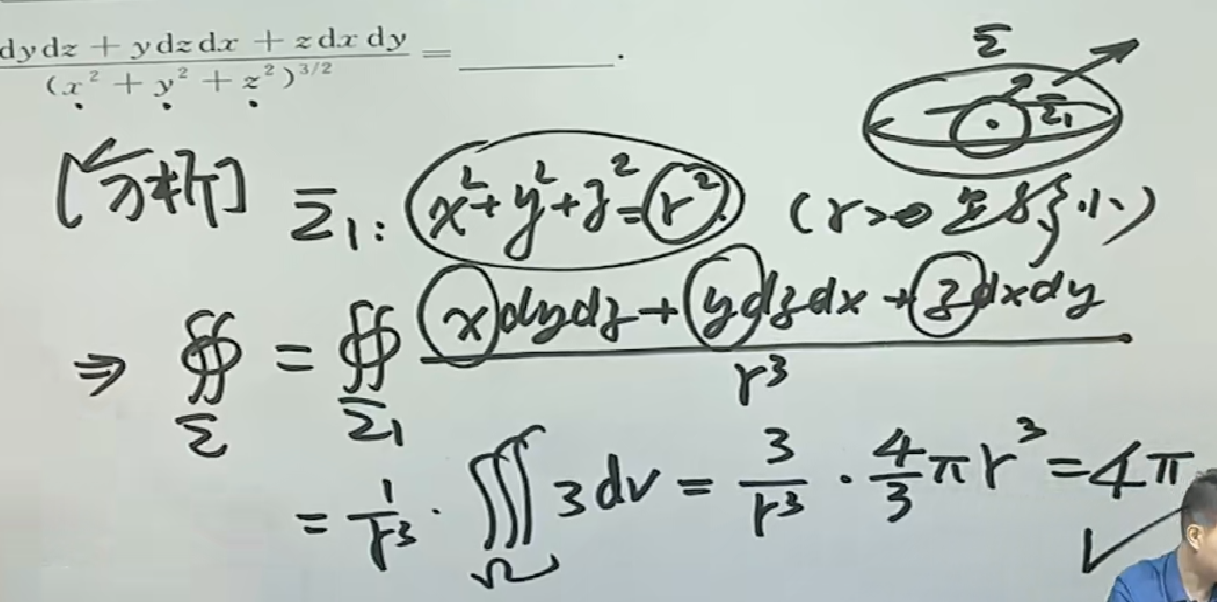 dydz + ydzdx + zdxdy
(x² + y² + z²)^{3/2} = ______.
Σ
Σ₁
[分析] Σ₁: x²+y²+z²=r² (r>0 足够小)
⇒ ∯_Σ = ∯_{Σ₁} (xdydz+ydzdx+zdxdy)/r³
= 1/r³ · ∭_Ω 3dv = 3/r³ · 4/3 πr³ = 4π